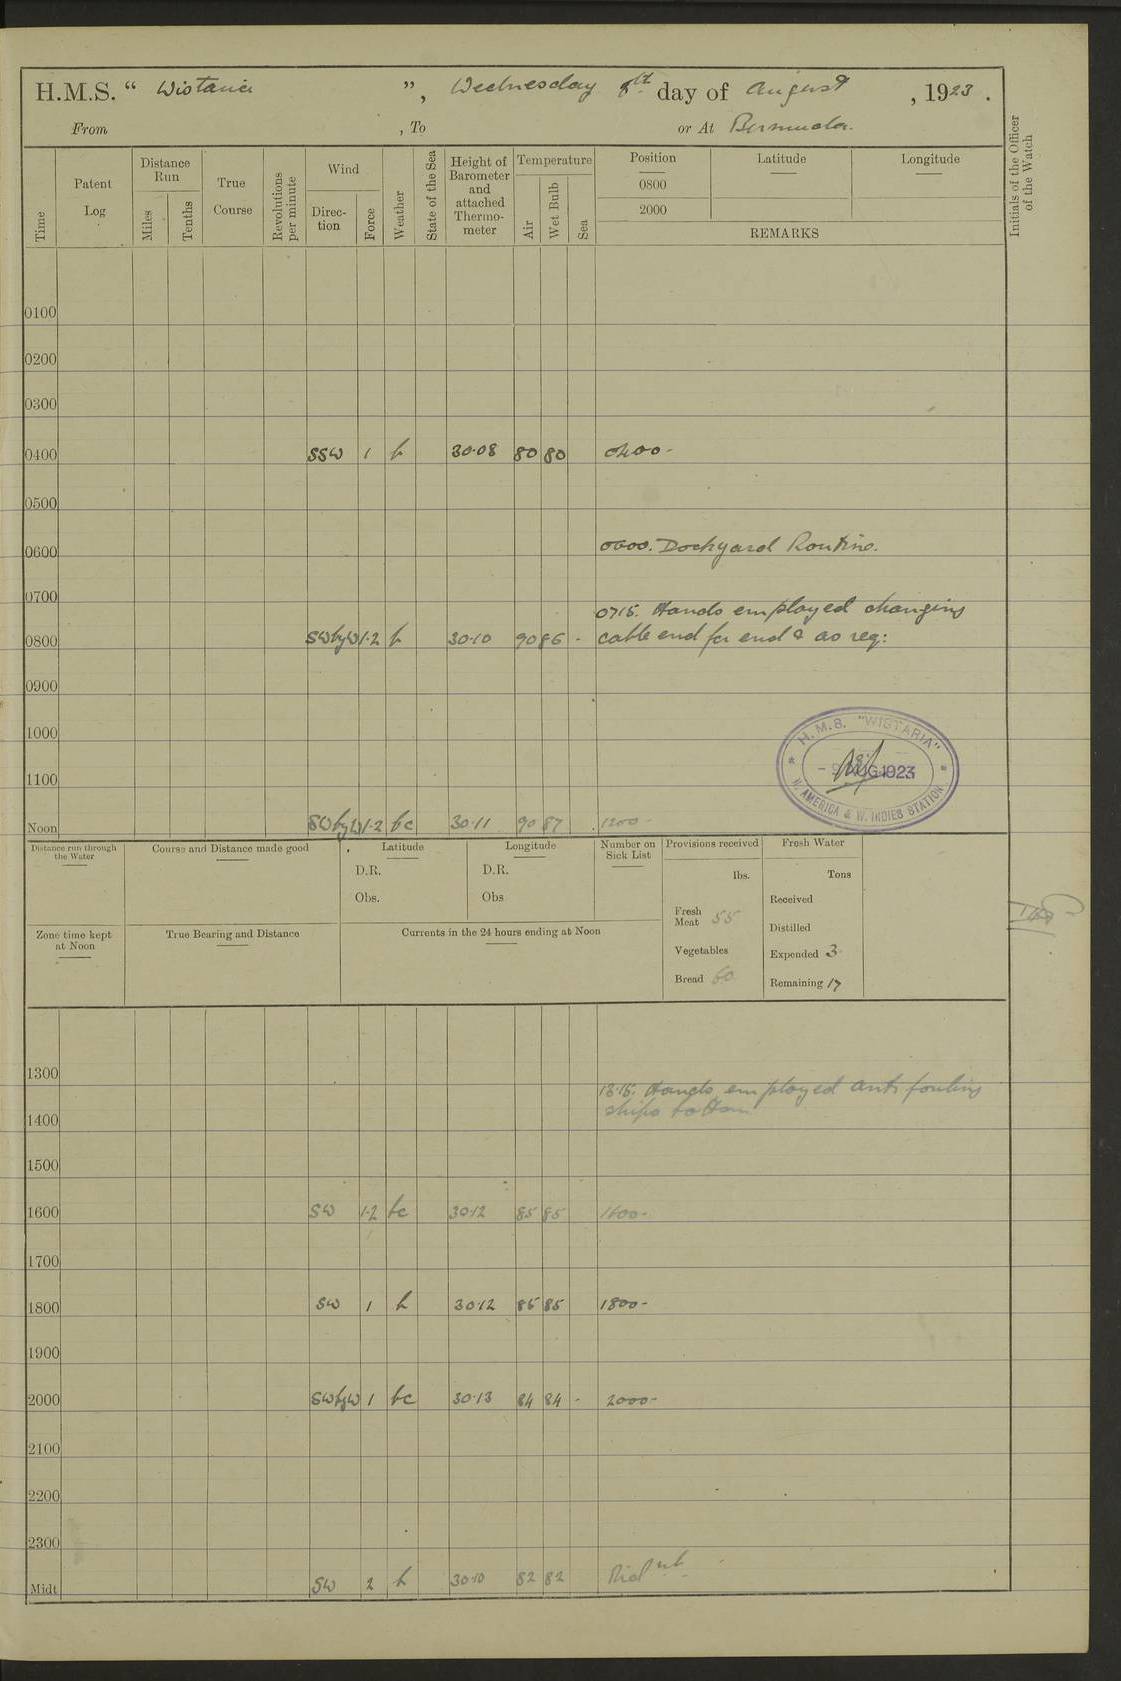 H.M.S. “ Wistaria ”, Wednesday 8th day of August, 1923.
From , To or At Bermuda.
Time
Patent Log
Distance Run
Miles
Tenths
True Course
Revolutions per minute
Wind
Direc-tion
Force
Weather
State of the Sea
Height of Barometer and attached Thermo-meter
Temperature
Air
Wet Bulb
Sea
Position Latitude Longitude
0800
2000
REMARKS
Initials of the Officer of the Watch
0100
0200
0300
0400 SSW 1 b 30.08 80 80 0400-
0500
0600 0600. Dockyard Routine.
0700 0715. Hands employed changing
0800 SWbyW 1-2 b 30.10 90 86 - cable end for end & as req:
0900
1000
H.M.S. "WISTARIA"
AUG 1923
N. AMERICA & W. INDIES STATION
1100
Noon SWbyW 1-2 bc 30.11 90 87 1200-
Distance run through the Water
Course and Distance made good
Latitude
D.R.
Obs.
Longitude
D.R.
Obs
Number on Sick List
Provisions received
lbs.
Fresh Meat 55
Vegetables
Bread 60
Fresh Water
Tons
Received
Distilled
Expended 3
Remaining 17
Zone time kept at Noon
True Bearing and Distance
Currents in the 24 hours ending at Noon
1300 13.15. Hands employed anti fouling
1400 ships bottom
1500
1600 SW 1-2 bc 30.12 85 85 1600-
1700
1800 SW 1 b 30.12 85 85 1800-
1900
2000 SWbyW 1 bc 30.13 84 84 - 2000-
2100
2200
2300
Midt SW 2 b 30.10 82 82